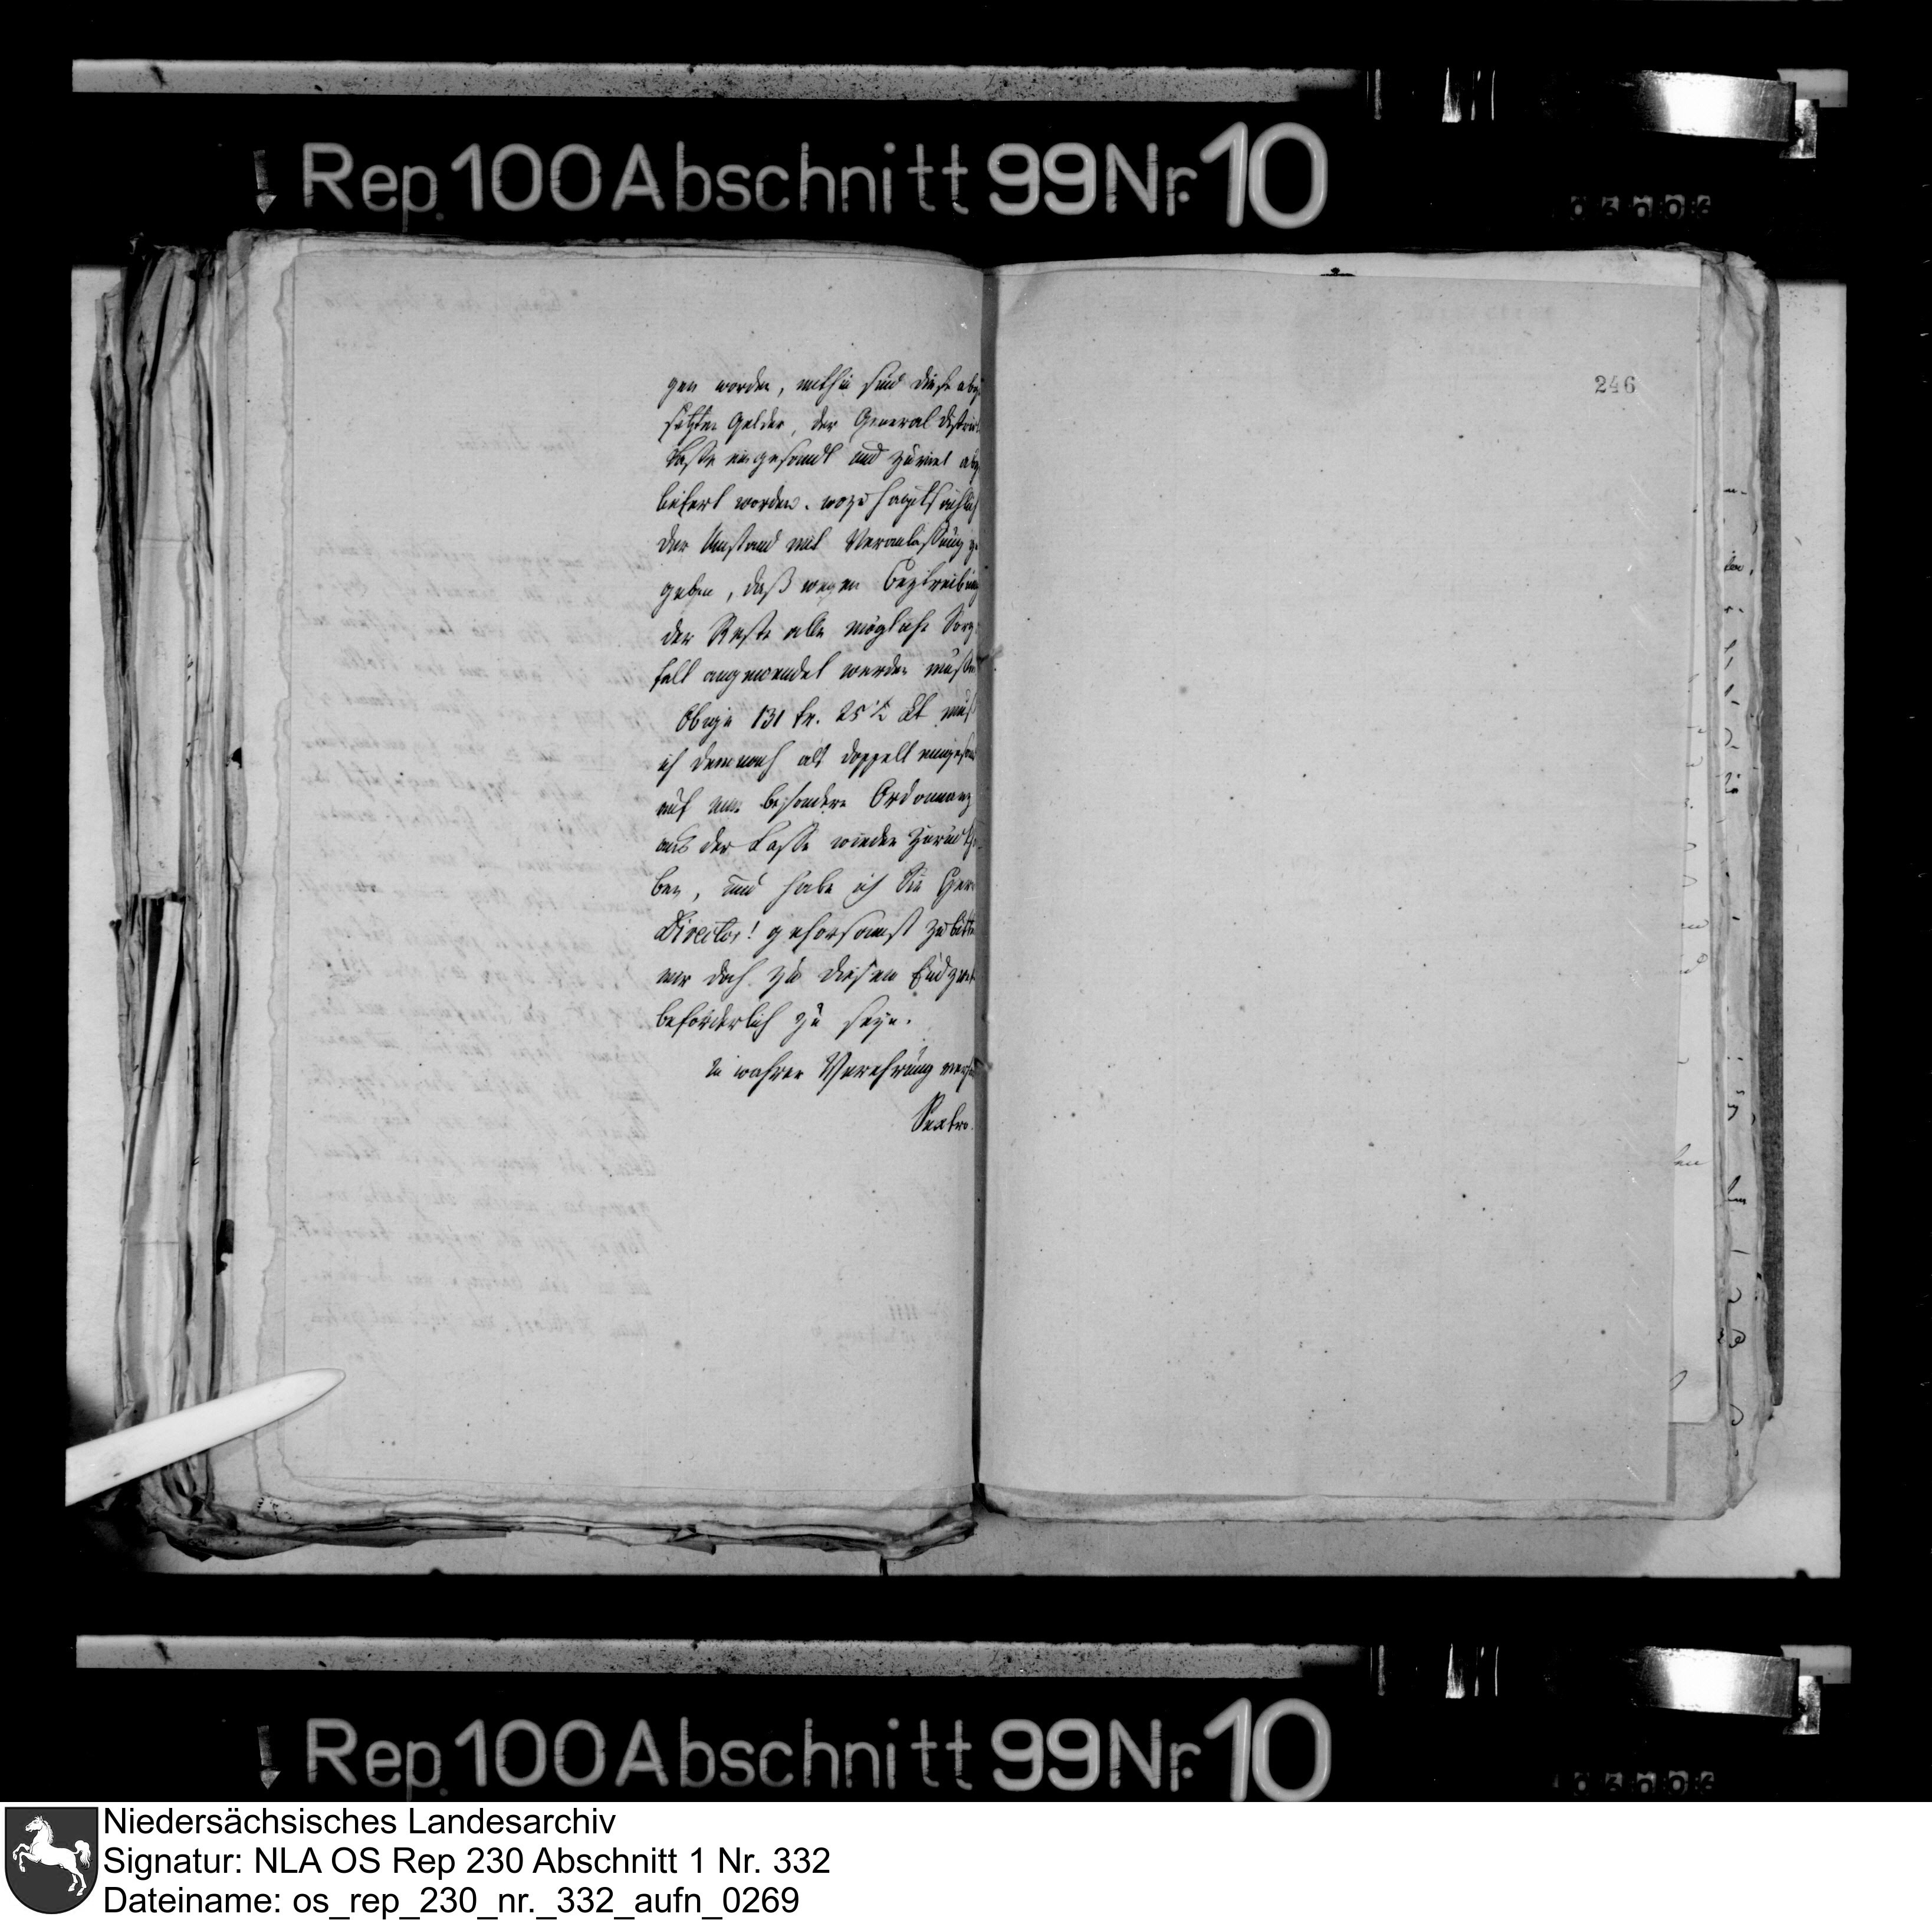 Rep. 100 Abschnitt 99 Nr. 10
246
gen worden, mithin sind diese abge
setzten Gelder, der General Distrikts
Casse eingesandt und zuviel abge
liefert worden. wozu hauptsächlich
der Umstand mit Veranlassung ge
geben, daß wegen Beytreibung
der Reste alle mögliche Sorg
falt angewendet werden mußte
Obige 131 fr. 25 ½ Ct muß
ich demnach als doppelt eingesandt
auf eine besondere Ordonnanz
aus der Casse wieder zurückha
ben, und habe ich Sie Herr
Director! gehorsamst zu bitten
mir doch zu diesem Endzweck
beförderlich zu seyn.
In wahrer Verehrung
Sextro.
Rep. 100 Abschnitt 99 Nr. 10
Niedersächsisches Landesarchiv
Signatur: NLA OS Rep 230 Abschnitt 1 Nr. 332
Dateiname: os_rep_230_nr._332_aufn_0269